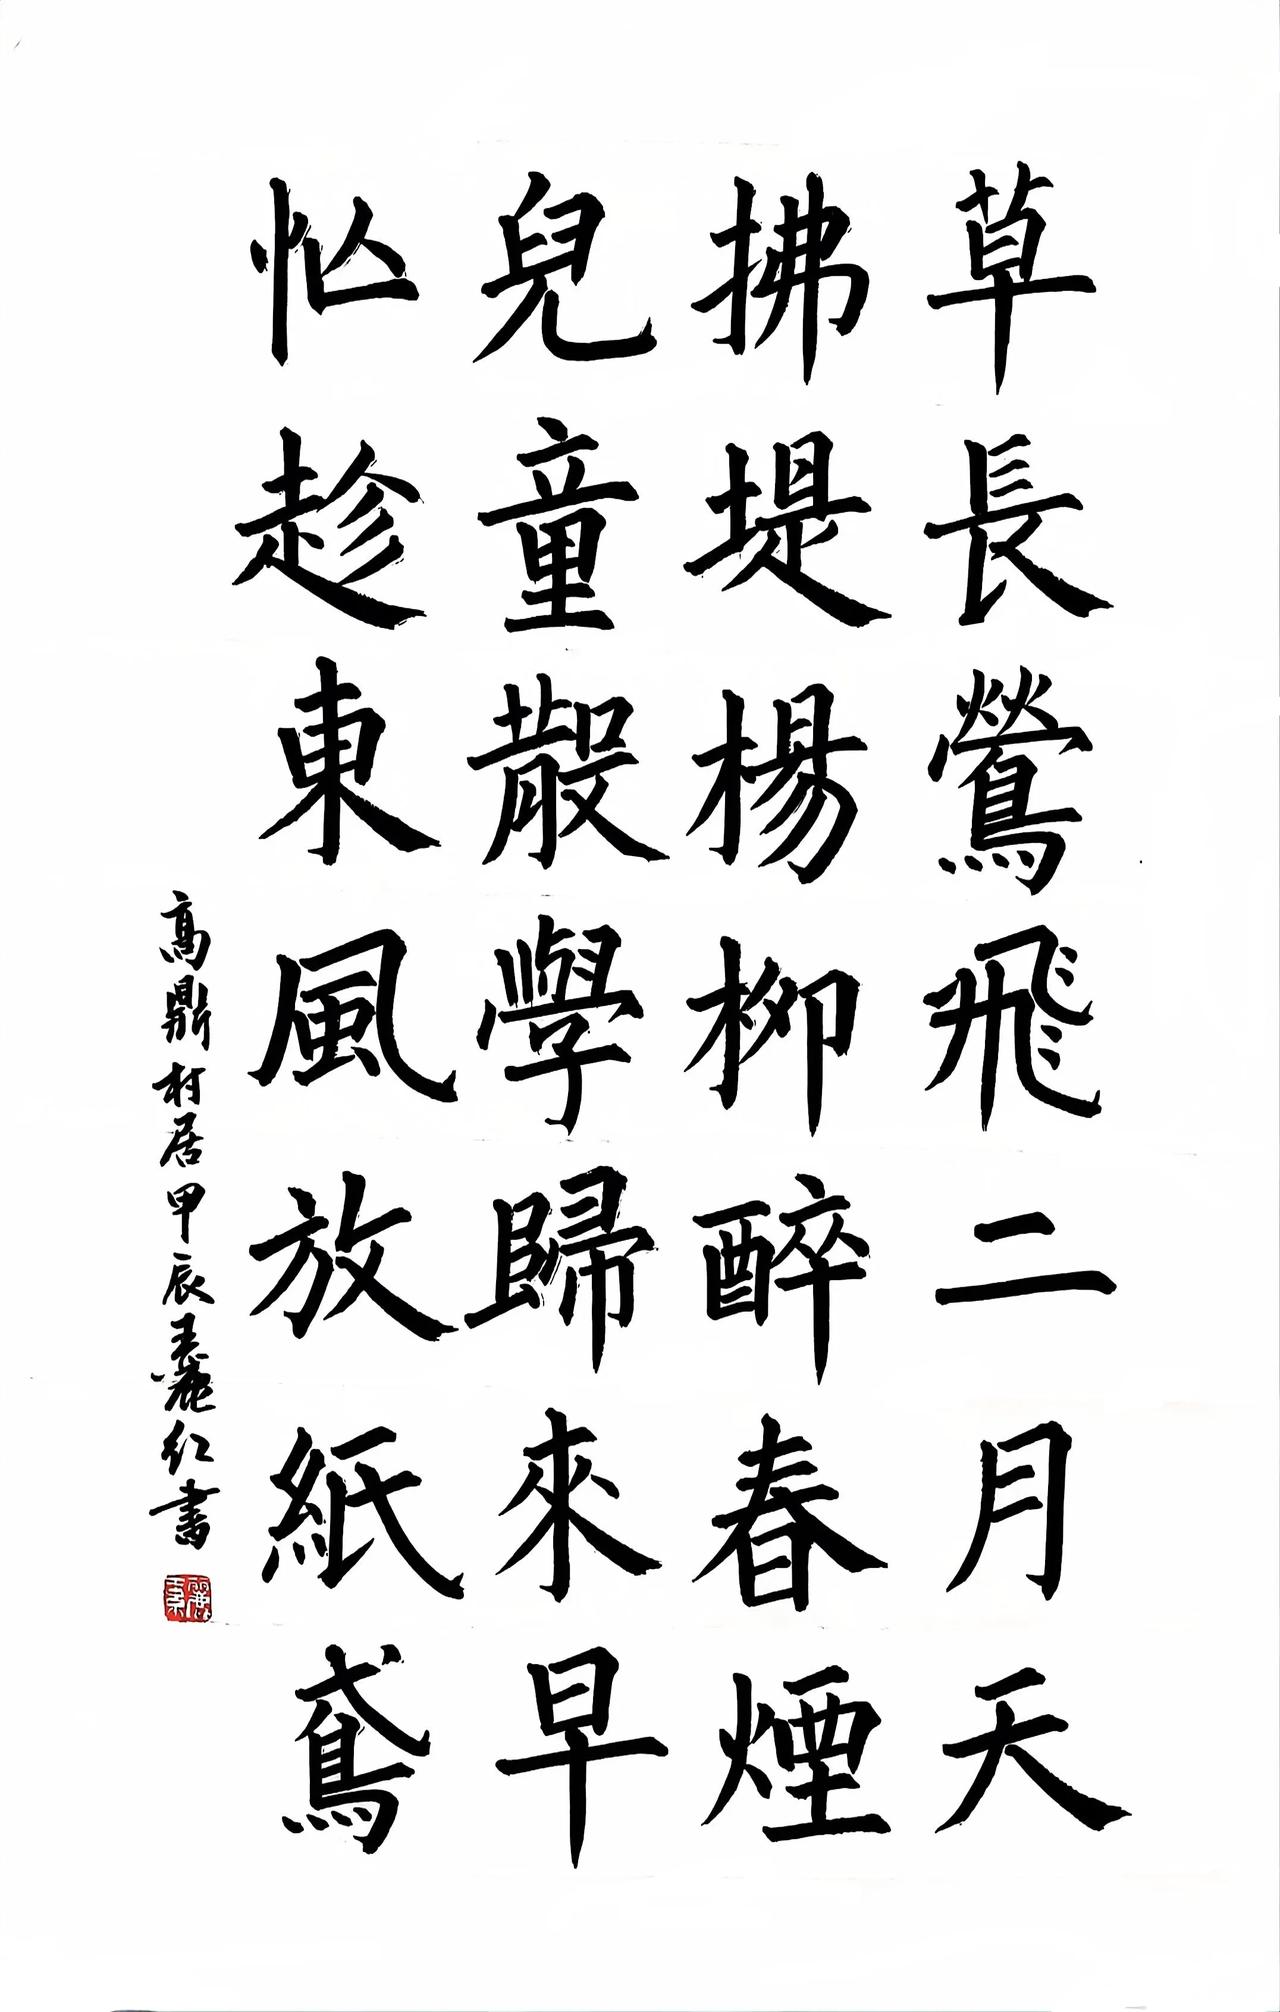 草長鶯飛二月天
拂堤楊柳醉春煙
兒童散學歸來早
忙趁東風放紙鳶
高鼎村居甲辰王麗红書